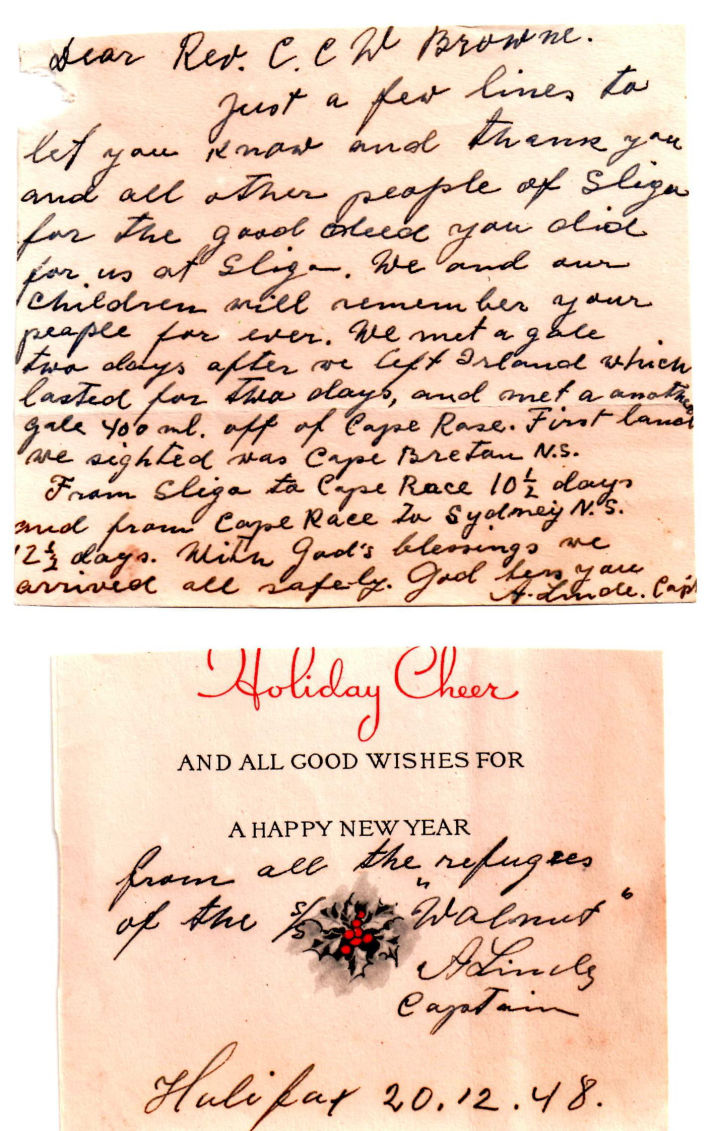 Dear Rev. C. C W Browne.
Just a few lines to
let you know and thank you
and all other people of Sligo
for the good deed you did
for us at Sligo. We and our
children will remember your
people for ever. We met a gale
two days after we left Irland which
lasted for two days, and met a another
gale 400 ml. off of Cape Rase. First land
we sighted was Cape Breton N.S.
From Sligo to Cape Race 10½ days
and from Cape Race to Sydney N.S.
2½ days. With God's blessings we
arrived all safely. God bess you
A. Linde. Capt
Holiday Cheer
AND ALL GOOD WISHES FOR
A HAPPY NEW YEAR
from all the refugees
of the S/S "Walnut"
A Linde
Captain
Halifax 20.12.48.